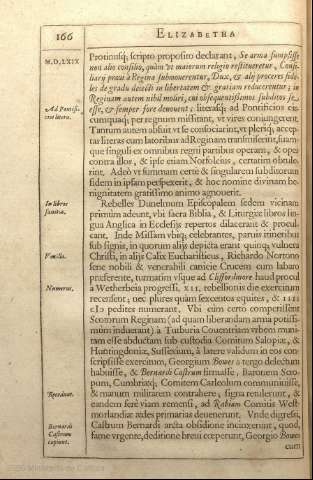 166
ELIZABETHA
M.D.LXIX
Protinusq; scripto proposito declarant, Se arma sumpsisse
non alio consilio, quàm vt maiorum religio restitueretur, Consi-
liarij praui à Regina submouerentur, Dux, & alij proceres fide-
les de gradu deiecti in libertatem & gratiam reducerentur; in
Reginam autem nihil moliri, cui obsequentissimos subditos se
esse, & semper fore deuouent: literasq; ad Pontificios cir-
Ad Pontifi-
cios litera.
cumquaq; per regnum mittunt, vt vires coniungerent.
Tantum autem abfuit vt se consociarint, vt pleriq; accep-
tas literas cum latoribus ad Reginam transmiserint, suam-
que singuli ex omnibus regni partibus operam, & opes
contra illos, & ipse etiam Norfolcius, certatim obtule-
rint. Adeò vt summam certè & singularem subditorum
fidem in ipsam perspexerit, & hoc nomine diuinam be-
nignitatem gratissimo animo agnouerit.
In libros
sauitia.
Rebelles Dunelmum Episcopalem sedem vicinam
primùm adeunt, vbi sacra Biblia, & Liturgiæ libros lin-
gua Anglica in Ecclesijs repertos dilacerant & procul-
cant. Inde Missam vbiq; celebrantes, paruis itineribus
sub signis, in quorum alijs depicta erant quinq; vulnera
Vexilla.
Christi, in alijs Calix Eucharisticus, Richardo Nortono
sene nobili & venerabili canicie Crucem cum labaro
præferente, tumatim vsque ad Cliffordmore haud procul
Numerus.
à Wetherbeia progressi, XII. rebellionis die exercitum
recensent; nec plures quàm sexcentos equites, & IIII
cIↃ pedites numerant. Vbi cùm certò comperissent
Scotorum Reginam (ad quam liberandam arma potissi-
mùm induerant) à Tutburia Couentriam vrbem muni-
tam esse abductam sub custodia Comitum Salopiæ, &
Huntingdoniæ, Sussexium, à latere validum in eos con-
scripsisse exercitum, Georgium Bowes à tergo delectum
habuisse, & Bernardi Castrum firmasse, Baronem Scro-
pum, Cumbriæq; Comitem Carleolum communiuisse,
& manum militarem contrahere; signa reuelerunt, &
Recedunt.
eandem ferè viam remensi, ad Rabiam Comitis West-
morlandiæ ædes primarias deuenerunt. Vnde digressi,
Bernardi
Castrum
capiunt.
Castrum Bernardi arcta obsidione incinxerunt, quod,
fame vrgente, deditione breui cœperunt, Georgio Bowes
cum